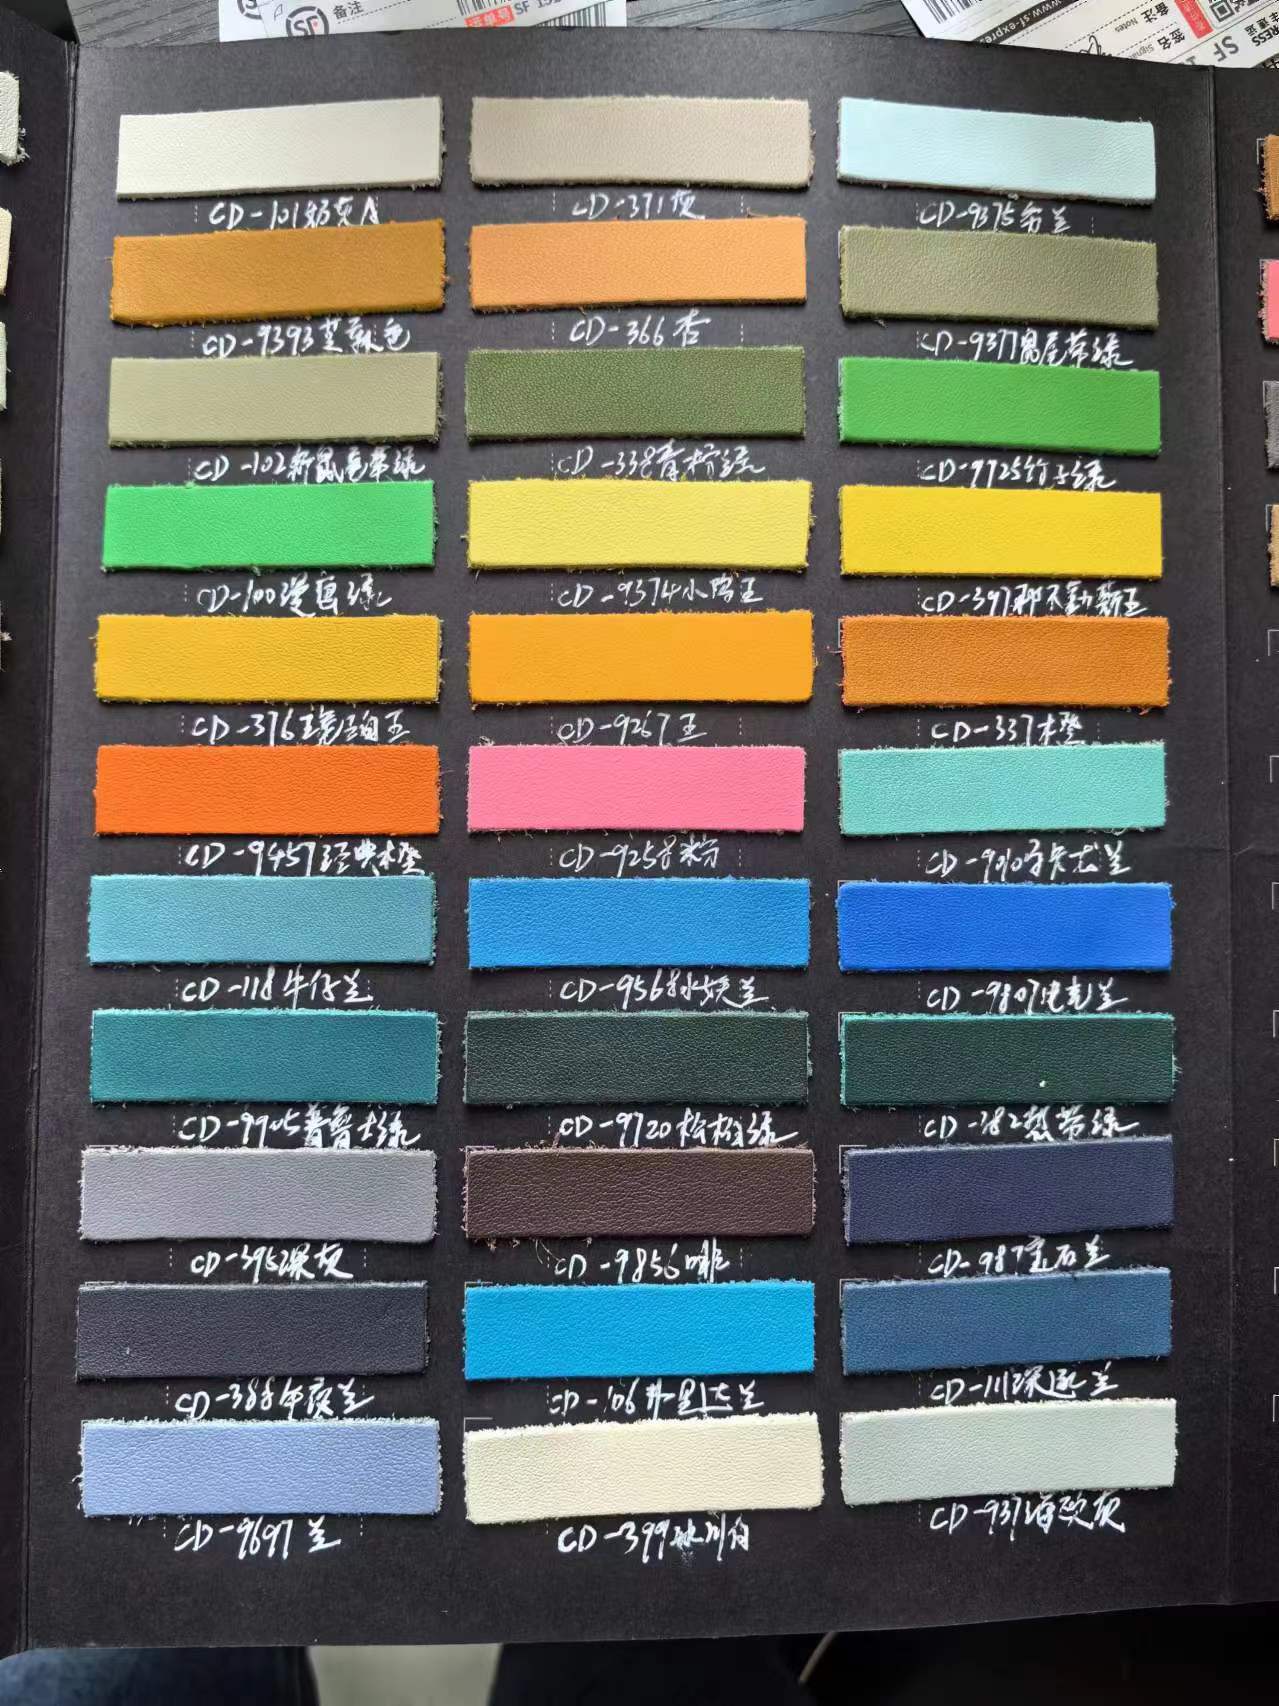 备注
运单号 SF 151
www.sf-expre
备注 Notes
签名
SF 1
CD-101奶灰A
CD-371灰
CD-9375雾兰
CD-9393芝麻色
CD-366杏
CD-9377鼠尾草绿
CD-102新鼠尾草绿
CD-338青柠绿
CD-9725竹子绿
CD-100漫画绿
CD-9374小鸡王
CD-397那不勒斯王
CD-376琥珀王
CD-9267王
CD-337橙
CD-9457经典橙
CD-9258粉
CD-118牛仔兰
CD-9568水妖兰
CD-9807电光兰
CD-9905普鲁士绿
CD-9720松柏绿
CD-382热带绿
CD-395深灰
CD-9856啡
CD-987宝石兰
CD-388午夜兰
CD-106井里大兰
CD-111深邃兰
CD-9697兰
CD-399冰川白
CD-937海鸥灰